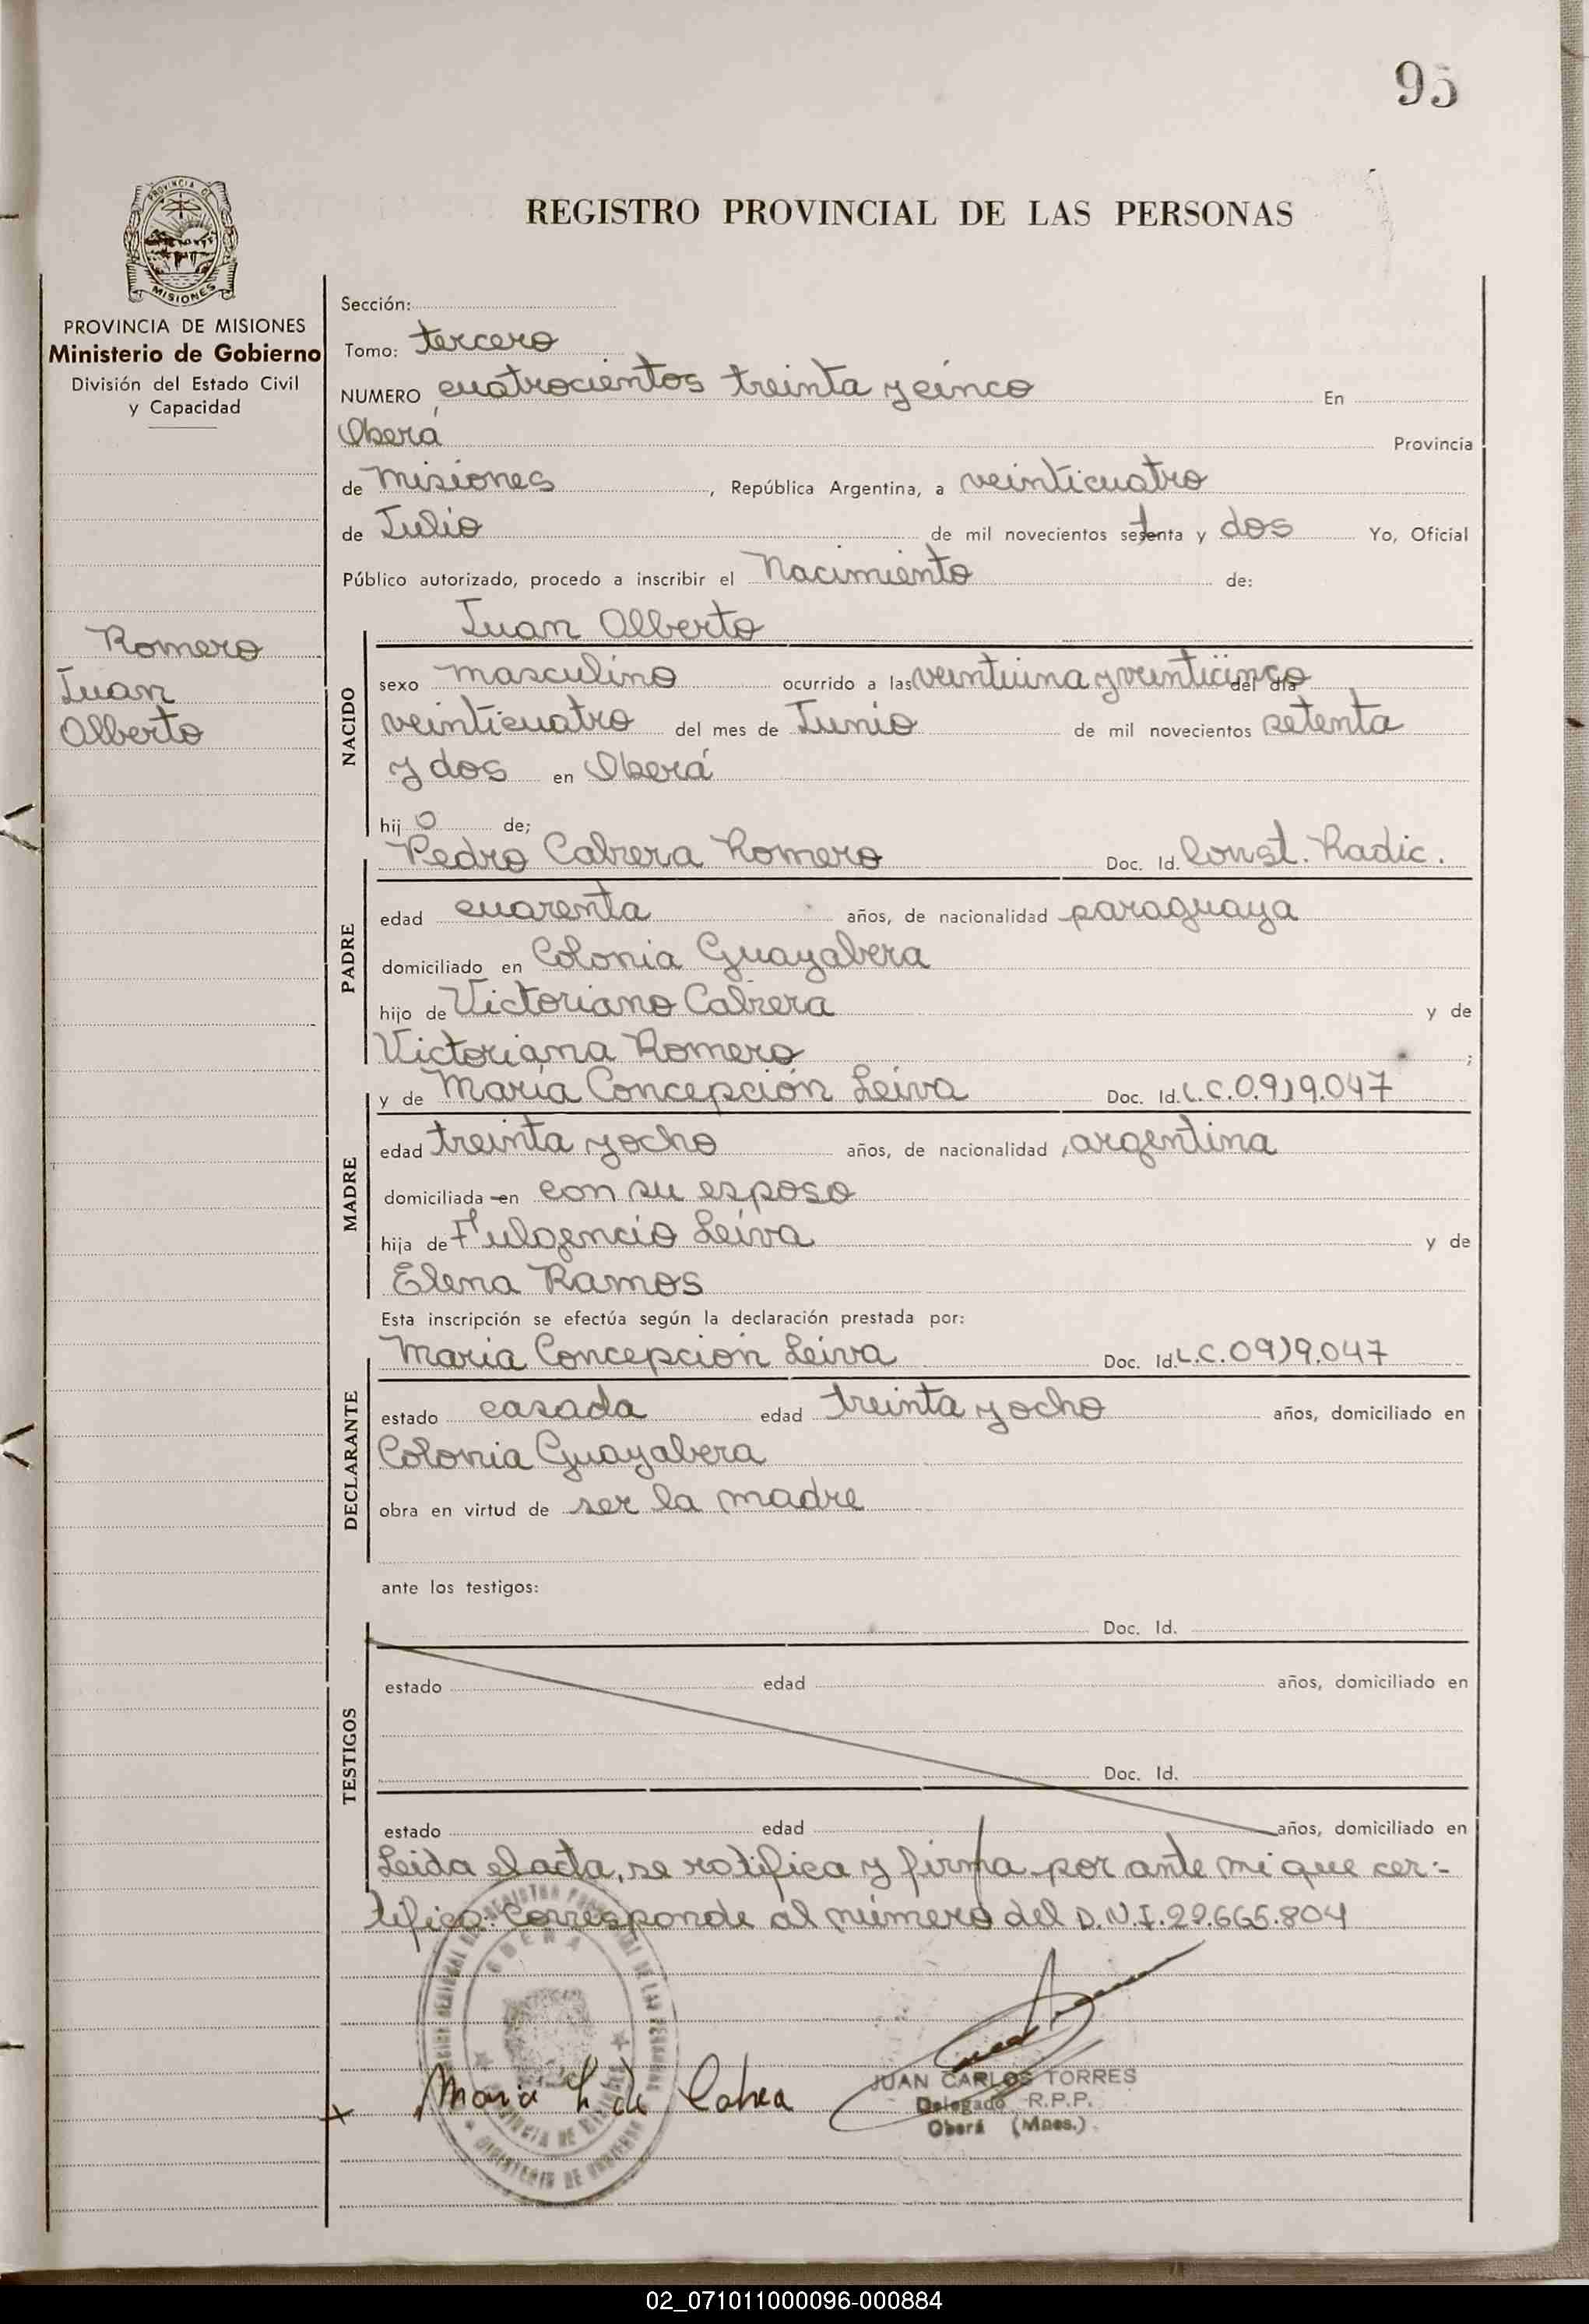 95
REGISTRO PROVINCIAL DE LAS PERSONAS
PROVINCIA DE MISIONES
PROVINCIA DE MISIONES
Ministerio de Gobierno
División del Estado Civil
y Capacidad
Romero
Juan
Alberto
Sección:
Tomo: tercero
NUMERO cuatrocientos treinta y cinco En
Oberá Provincia
de Misiones, República Argentina, a veinticuatro
de Julio de mil novecientos setenta y dos Yo, Oficial
Público autorizado, procedo a inscribir el Nacimiento de:
Juan Alberto
NACIDO
sexo masculino ocurrido a las veintiuna y veinticinco del día
veinticuatro del mes de Junio de mil novecientos setenta
y dos en Oberá
hijo de;
PADRE
Pedro Cabrera Romero Doc. Id. Const. Radic.
edad cuarenta años, de nacionalidad paraguaya
domiciliado en Colonia Guayabera
hijo de Victoriano Cabrera y de
Victoriana Romero;
MADRE
y de María Concepción Leiva Doc. Id. L.C.0.919.047
edad treinta y ocho años, de nacionalidad argentina
domiciliada en con su esposo
hija de Fulgencio Leiva y de
Elena Ramos
Esta inscripción se efectúa según la declaración prestada por:
DECLARANTE
Maria Concepción Leiva Doc. Id. L.C.0919.047
estado casada edad treinta y ocho años, domiciliado en
Colonia Guayabera
obra en virtud de ser la madre
ante los testigos:
TESTIGOS
Doc. Id.
estado edad años, domiciliado en
Doc. Id.
estado edad años, domiciliado en
Leida el acta, se ratifica y firma por ante mi que cer=
tifico: Corresponde al número del D.N.I.22.665.804
OBERA
PROVINCIA DE MISIONES
MINISTERIO DE GOBIERNO
Maria L. de
JUAN CARLOS TORRES
Delegado R.P.P.
Oberá (Mnes.)
02_071011000096-000884